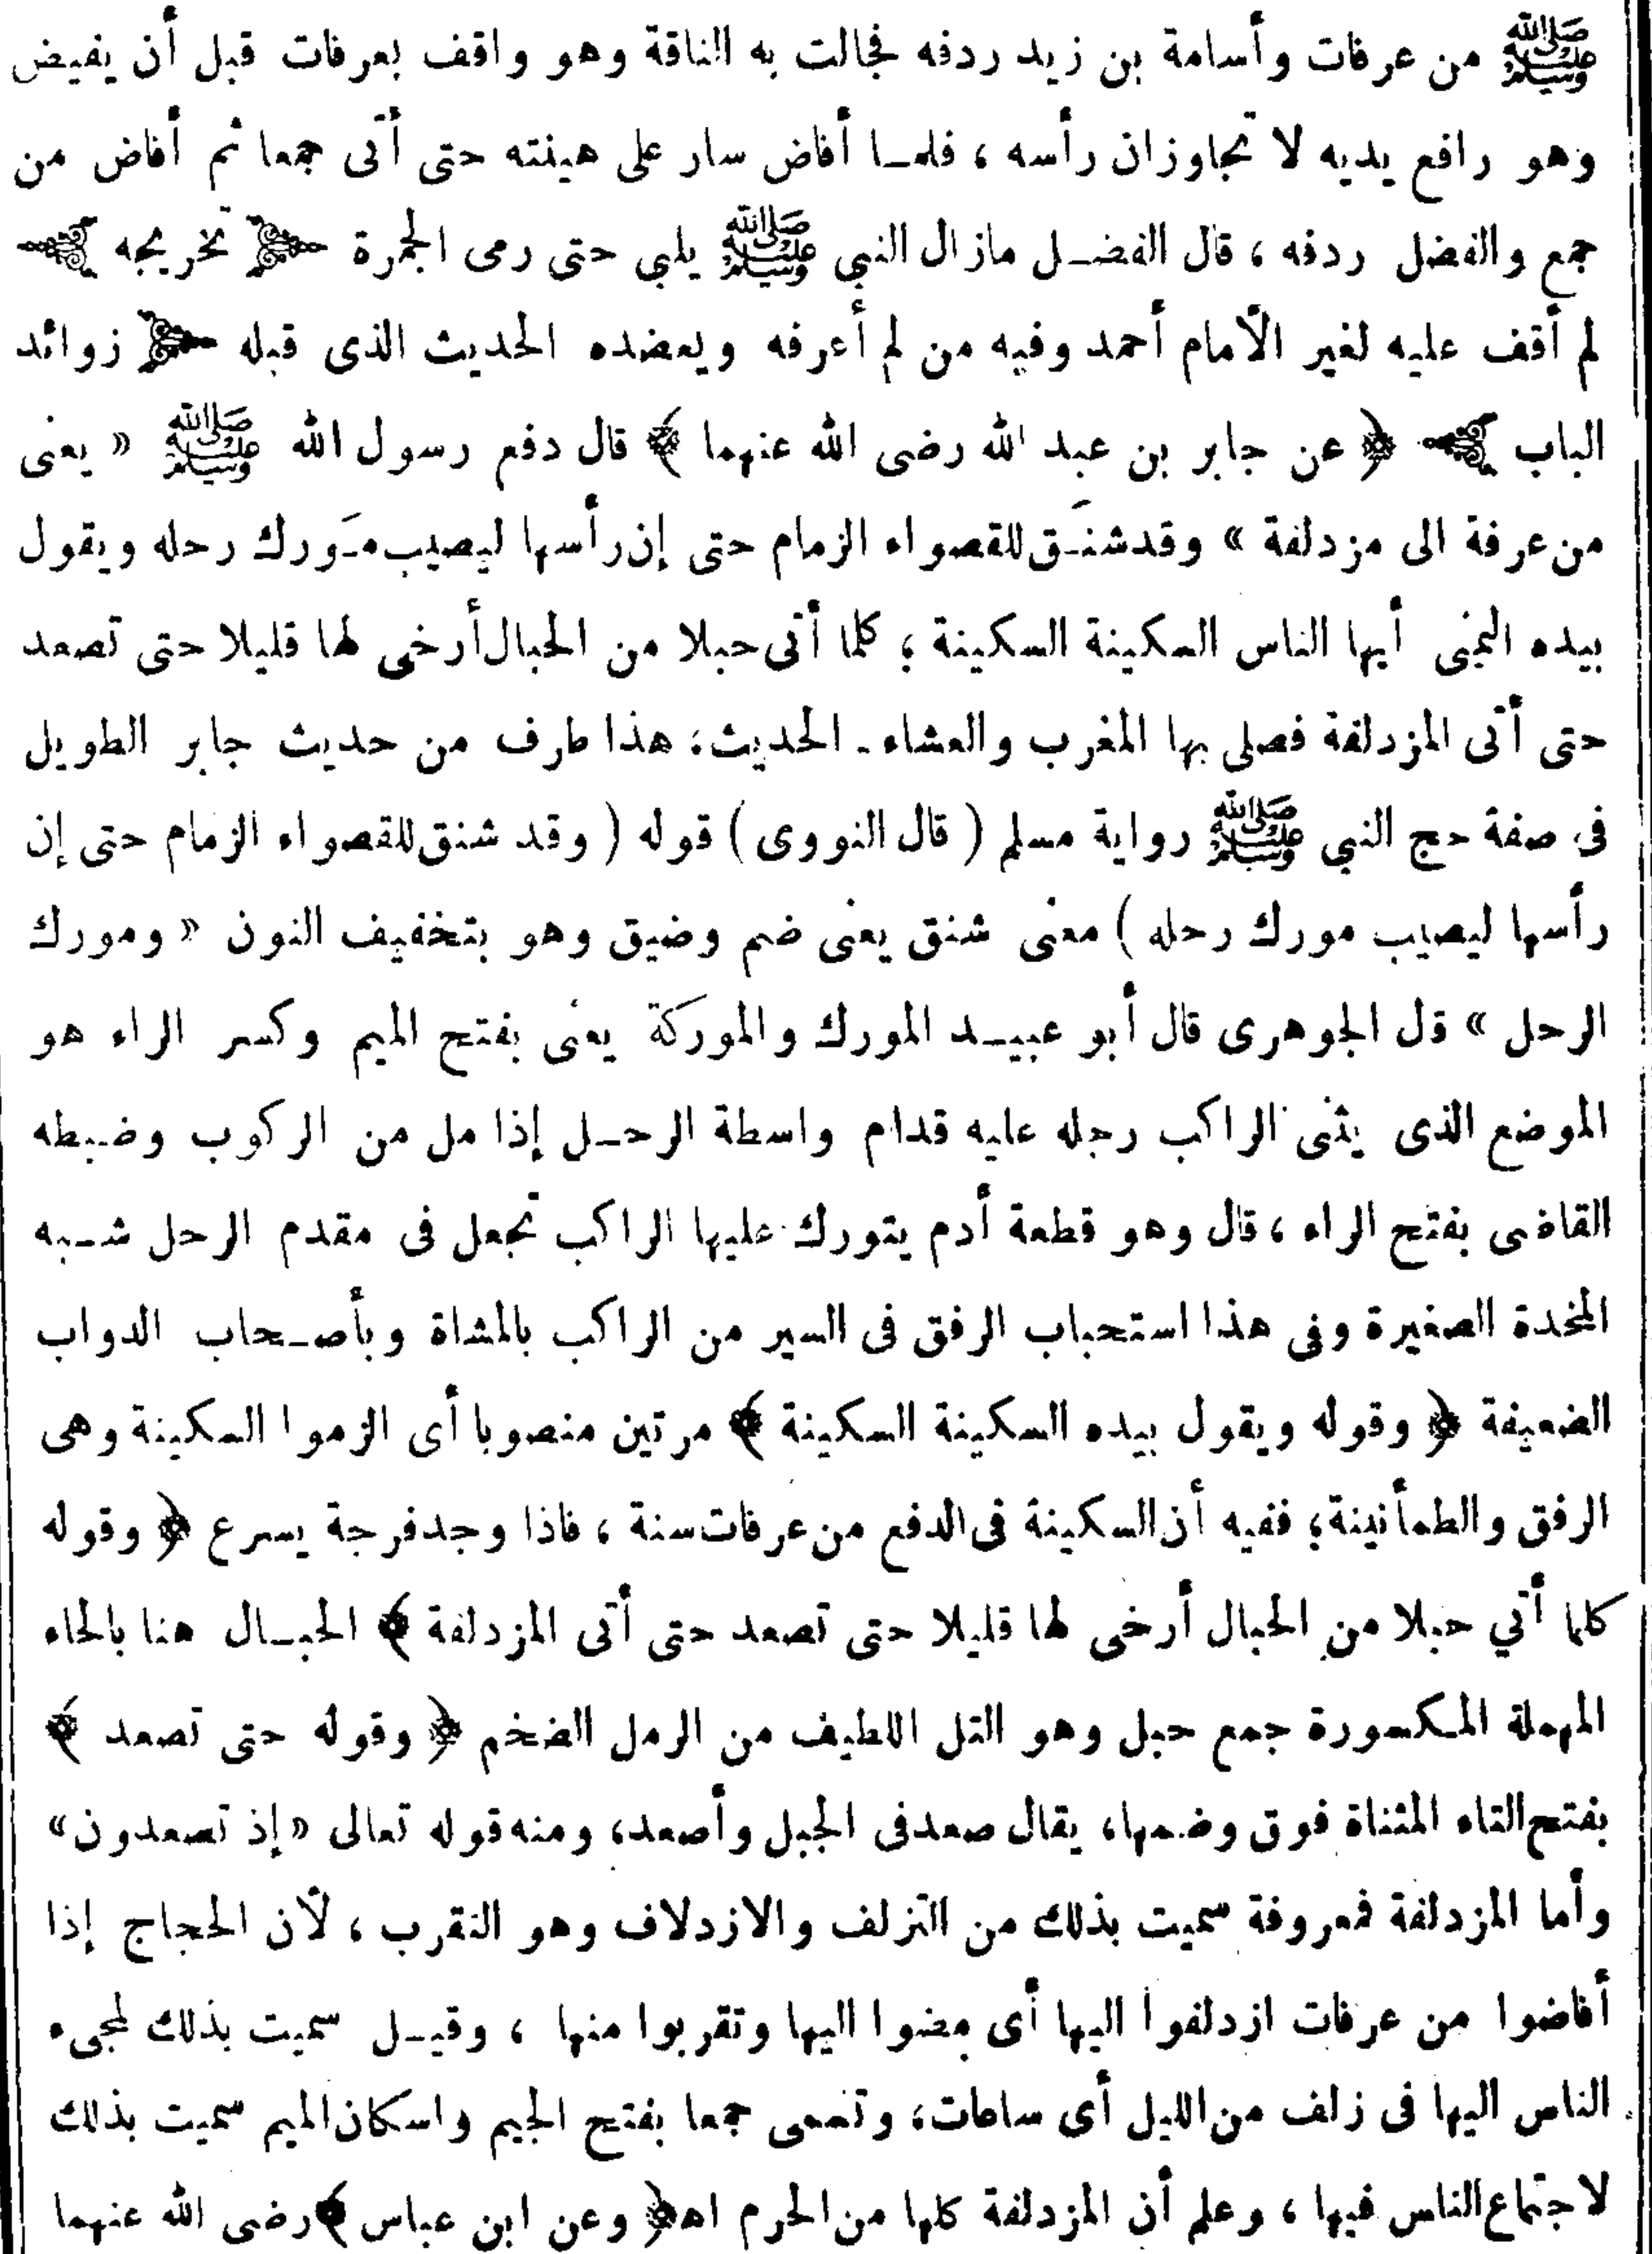 ﷺ من عرفات وأسامة بن زيد ردفه فجالت به الناقة وهو واقف بعرفات قبل أن يفيض
وهو رافع يديه لا تجاوزان رأسه ، فلمـا أفاض سار على هينته حتى أتى جمعا ثم أفاض من
جمع والفضل ردفه ، قال الفضـل مازال النبى ﷺ يلبى حتى رمى الجمرة ﴿ تخريجه ﴾
لم أقف عليه لغير الأمام أحمد وفيه من لم أعرفه ويعضده الحديث الذى قبله ﴿ زوائد
الباب ﴾ ﴿ عن جابر بن عبد الله رضى الله عنهما ﴾ قال دفع رسول الله ﷺ « يعنى
من عرفة الى مزدلفة » وقد شنَـق للقصواء الزمام حتى إن رأسها ليصيب مَـورك رحله ويقول
بيده اليمنى أيها الناس السكينة السكينة ؛ كلما أتى حبلا من الحبال أرخى لها قليلا حتى تصعد
حتى أتى المزدلفة فصلى بها المغرب والعشاء ـ الحديث ؛ هذا طرف من حديث جابر الطويل
فى صفة حج النبى ﷺ رواية مسلم ( قال النووى ) قوله ( وقد شنق للقصواء الزمام حتى إن
رأسها ليصيب مورك رحله ) معنى شنق يعنى ضم وضيق وهو بتخفيف النون « ومورك
الرحل » قل الجوهرى قال أبو عبيـد المورك والموركة يعنى بفتح الميم وكسر الراء هو
الموضع الذى يثنى الراكب رجله عليه قدام واسطة الرحـل إذا مل من الركوب وضبطه
القاضى بفتح الراء ، قال وهو قطعة أدم يتورك عليها الراكب تجعل فى مقدم الرحل شـبه
المخدة الصغيرة وفى هذا استحباب الرفق فى السير من الراكب بالمشاة وبأصـحاب الدواب
الضعيفة ﴿ وقوله ويقول بيده السكينة السكينة ﴾ مرتين منصوبا أى الزموا السكينة وهى
الرفق والطمأنينة ؛ ففيه أن السكينة فى الدفع من عرفات سنة ، فاذا وجد فرجة يسرع ﴿ وقوله
كلما أتي حبلا من الحبال أرخى لها قليلا حتى تصعد حتى أتى المزدلفة ﴾ الحبـال هنا بالحاء
المهملة المكسورة جمع حبل وهو التل اللطيف من الرمل الضخم ﴿ وقوله حتى تصعد ﴾
بفتح التاء المثناة فوق وضمها، يقال صعد فى الجبل وأصعد، ومنه قوله تعالى « إذ تصعدون»
وأما المزدلفة فمعروفة سميت بذلك من التزلف والازدلاف وهو التقرب ، لأن الحجاج إذا
أفاضوا من عرفات ازدلفوا اليها أى مضوا اليها وتقربوا منها ، وقيـل سميت بذلك لمجىء
الناس اليها فى زلف من الليل أى ساعات، وتسمى جمعا بفتح الجيم واسكان الميم سميت بذلك
لاجتماع الناس فيها ، وعلم أن المزدلفة كلها من الحرم اه ﴿ وعن ابن عباس ﴾ رضى الله عنهما